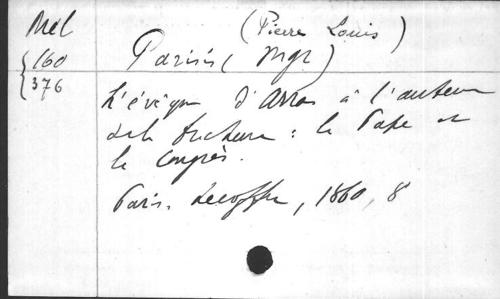 Mel
160
376
(Pierre Louis)
Parisis (Mgr)
L'évêque d'Arras à l'auteur
de la brochure : le Pape et
le Congrès.
Paris. Lecoffre, 1860, 8